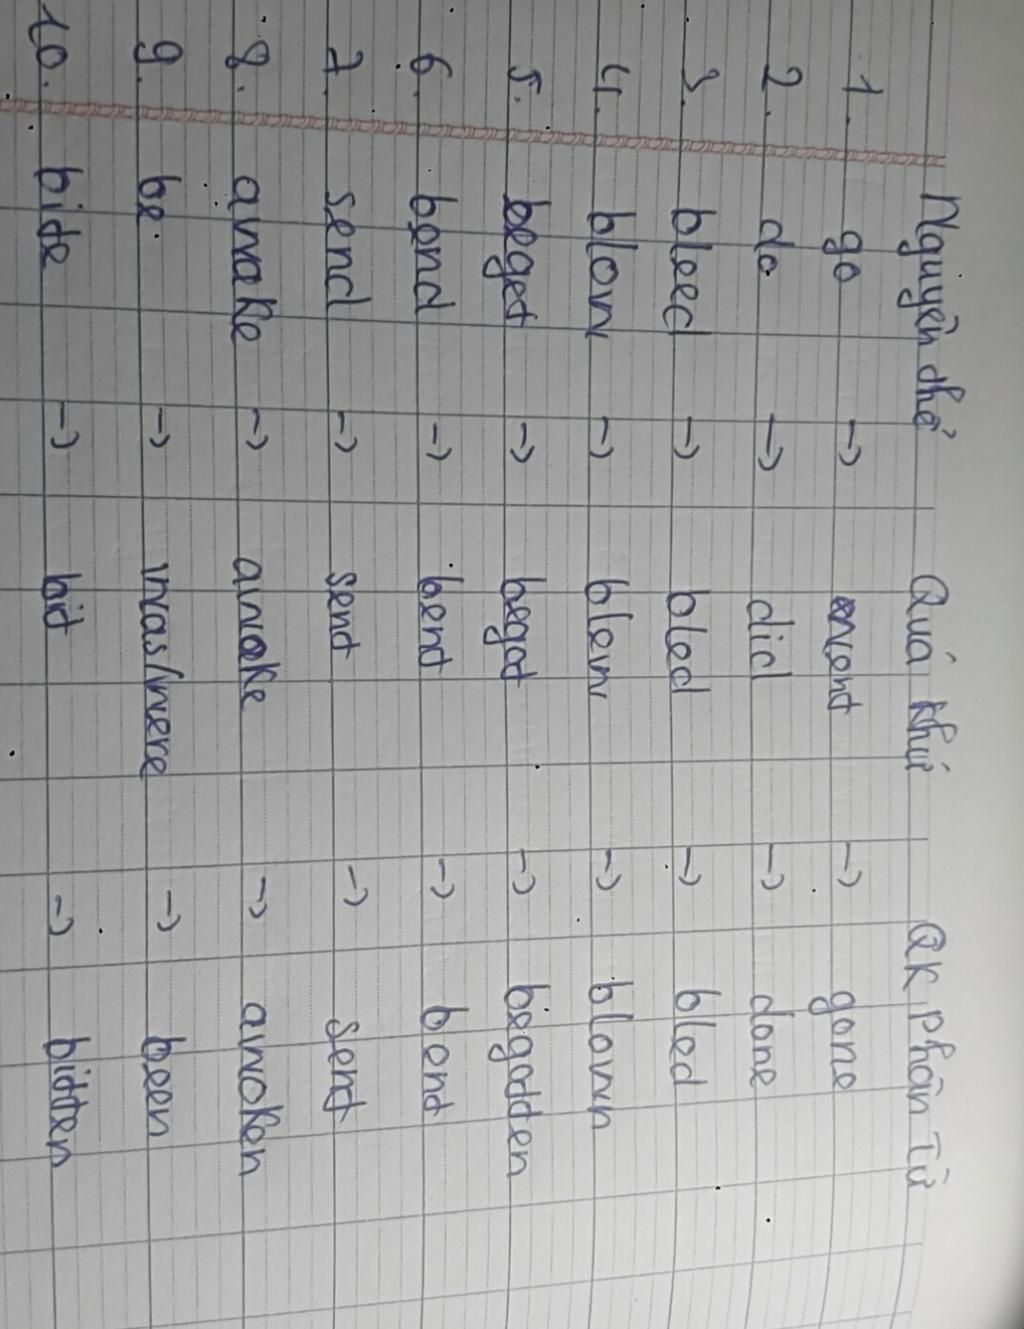 Nguyên thể Quá khứ QK phân từ
1. go -> went -> gone
2. do -> did -> done
3. bleed -> bled -> bled
4. blow -> blew -> blown
5. beget -> begot -> begotten
6. bend -> bent -> bent
7. send -> sent -> sent
8. awake -> awoke -> awoken
9. be -> was/were -> been
10. bite -> bit -> bitten